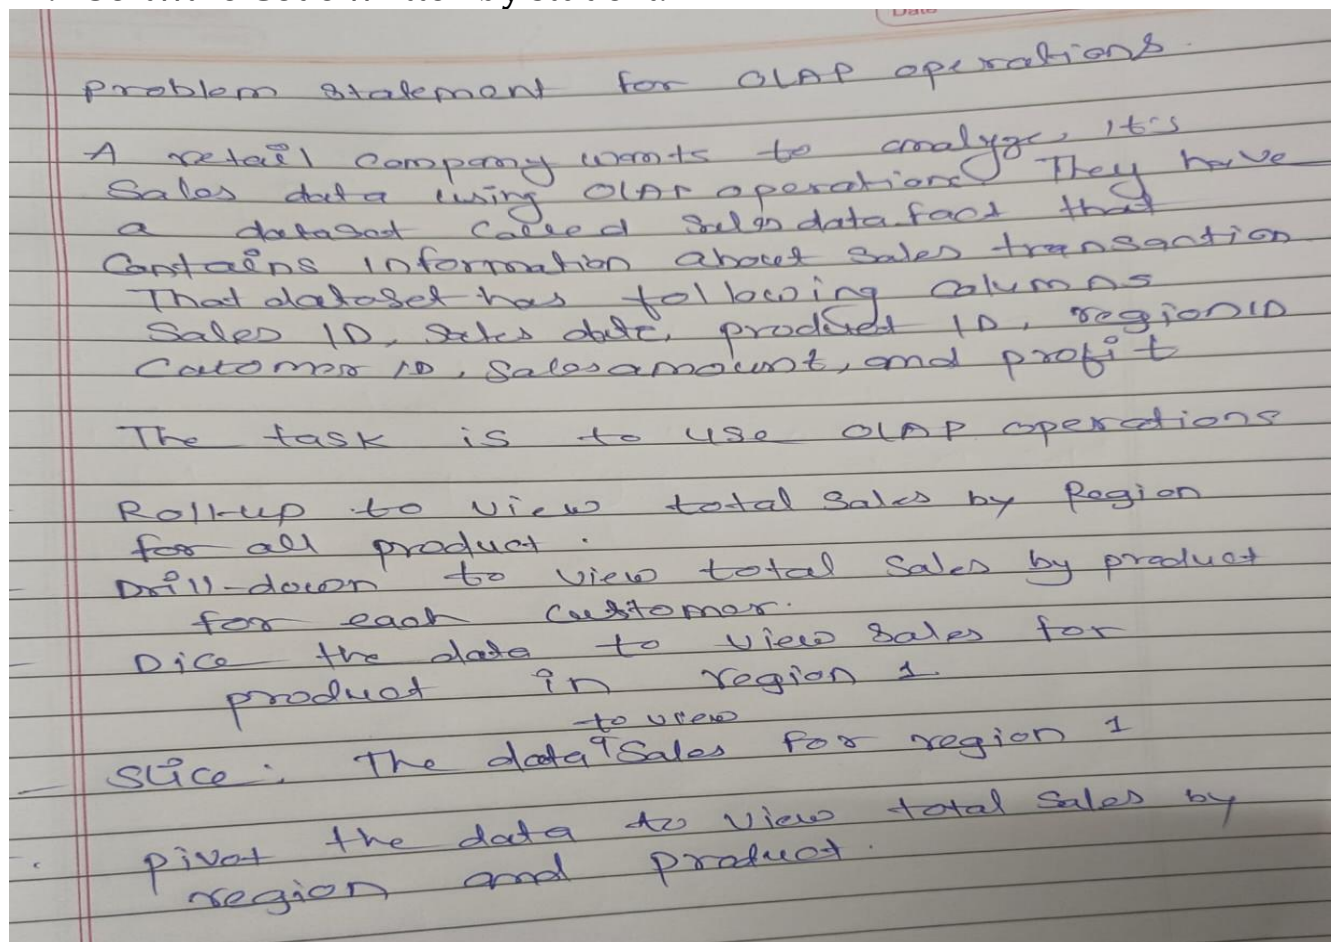 Date
problem statement for OLAP operations.
A retail company wants to analyze, it's
Sales data using OLAP operations They have
a dataset called Sales data fact that
Contains information about sales transaction
That dataset has following columns
Sales ID, Sales date, product ID, region ID
Catomer ID, Sales amount, and profit
The task is to use OLAP operations
Roll-up to view total Sales by Region
for all product.
Drill-down to view total Sales by product
for each customer.
Dice the data to view Sales for
product in region 1.
to view
Slice: The data Sales for region 1
pivot the data to view total Sales by
region and product.